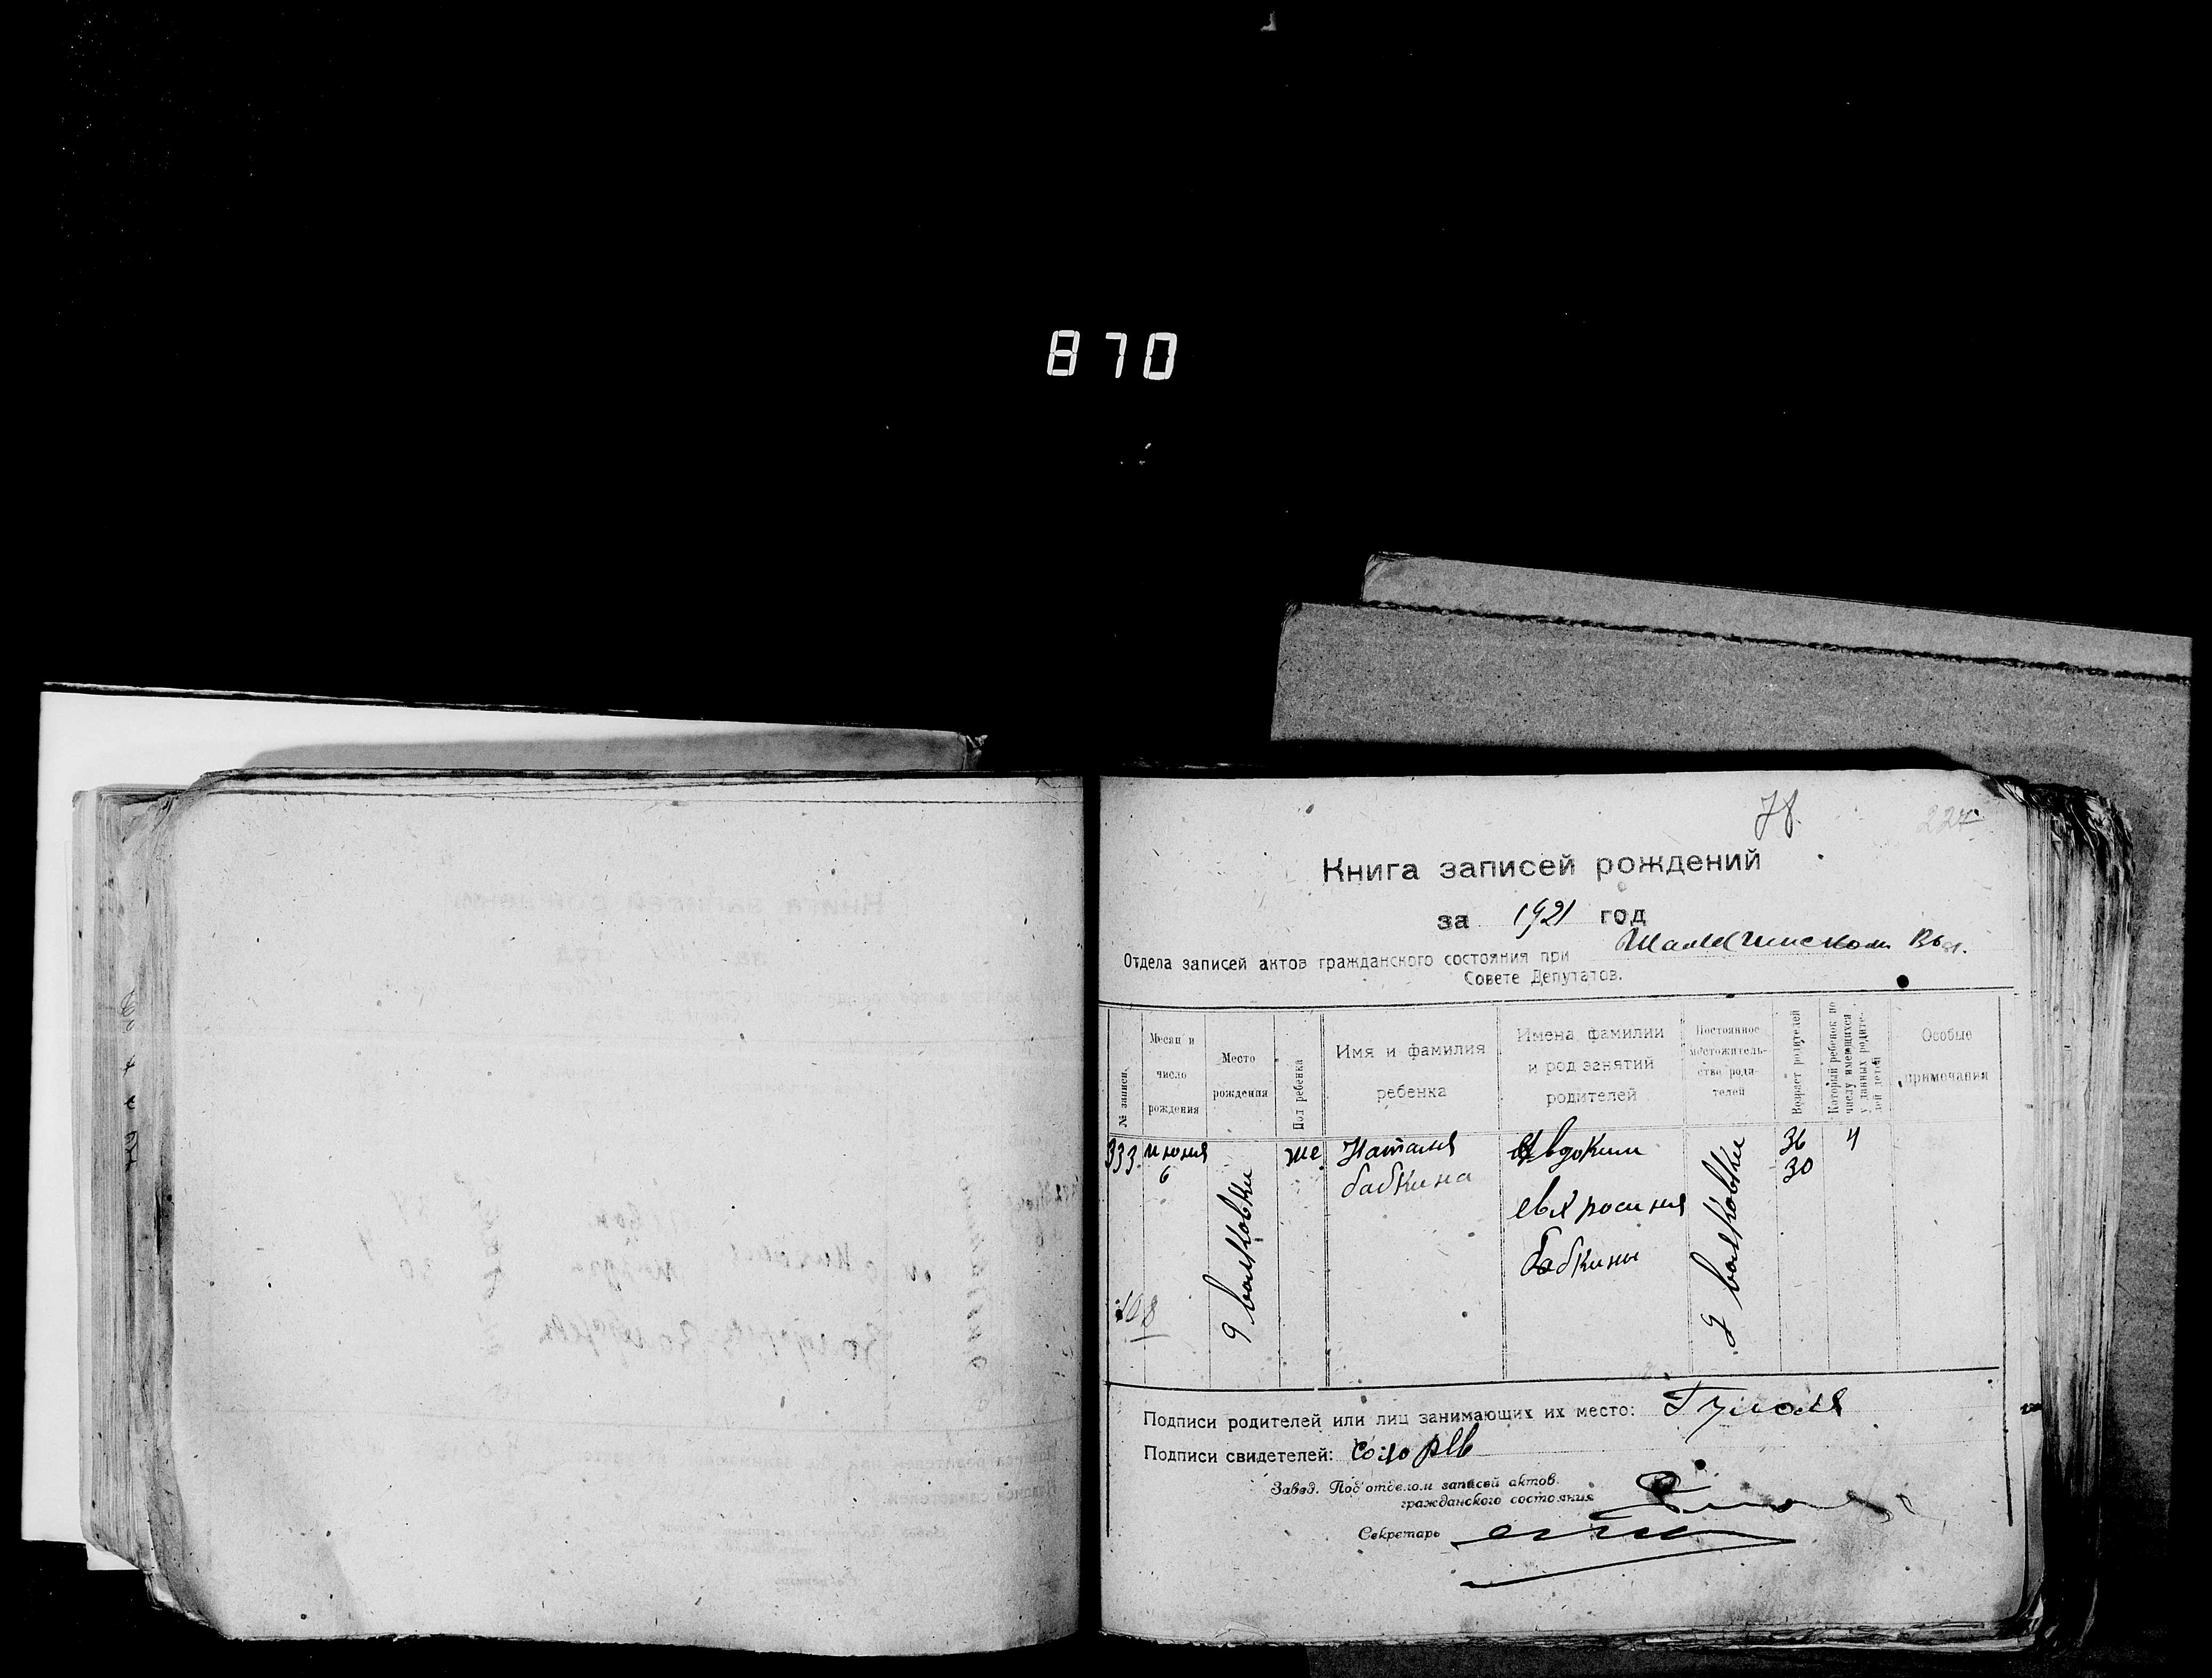 870
78.
224
Книга записей рождений
за 1921 год
Отдела записей актов гражданского состояния при
Совете Депутатов.
№ записи.
Месяц и число рождения
Место рождения
Пол ребенка
Имя и фамилия ребенка
Имена, фамилии и род занятий родителей
Постоянное местожительство родителей
Возраст родителей
Который ребенок по числу имеющихся у данных родителей детей
Особые примечания
333. июня 6
д волковки
же
Наталия бабкина
Евдоким
евхросиния
бабкины
д волковки
36
30
4
108
Подписи родителей или лиц занимающих их место:
Подписи свидетелей:
Завед. Подотделом записей актов
гражданского состояния
Секретарь